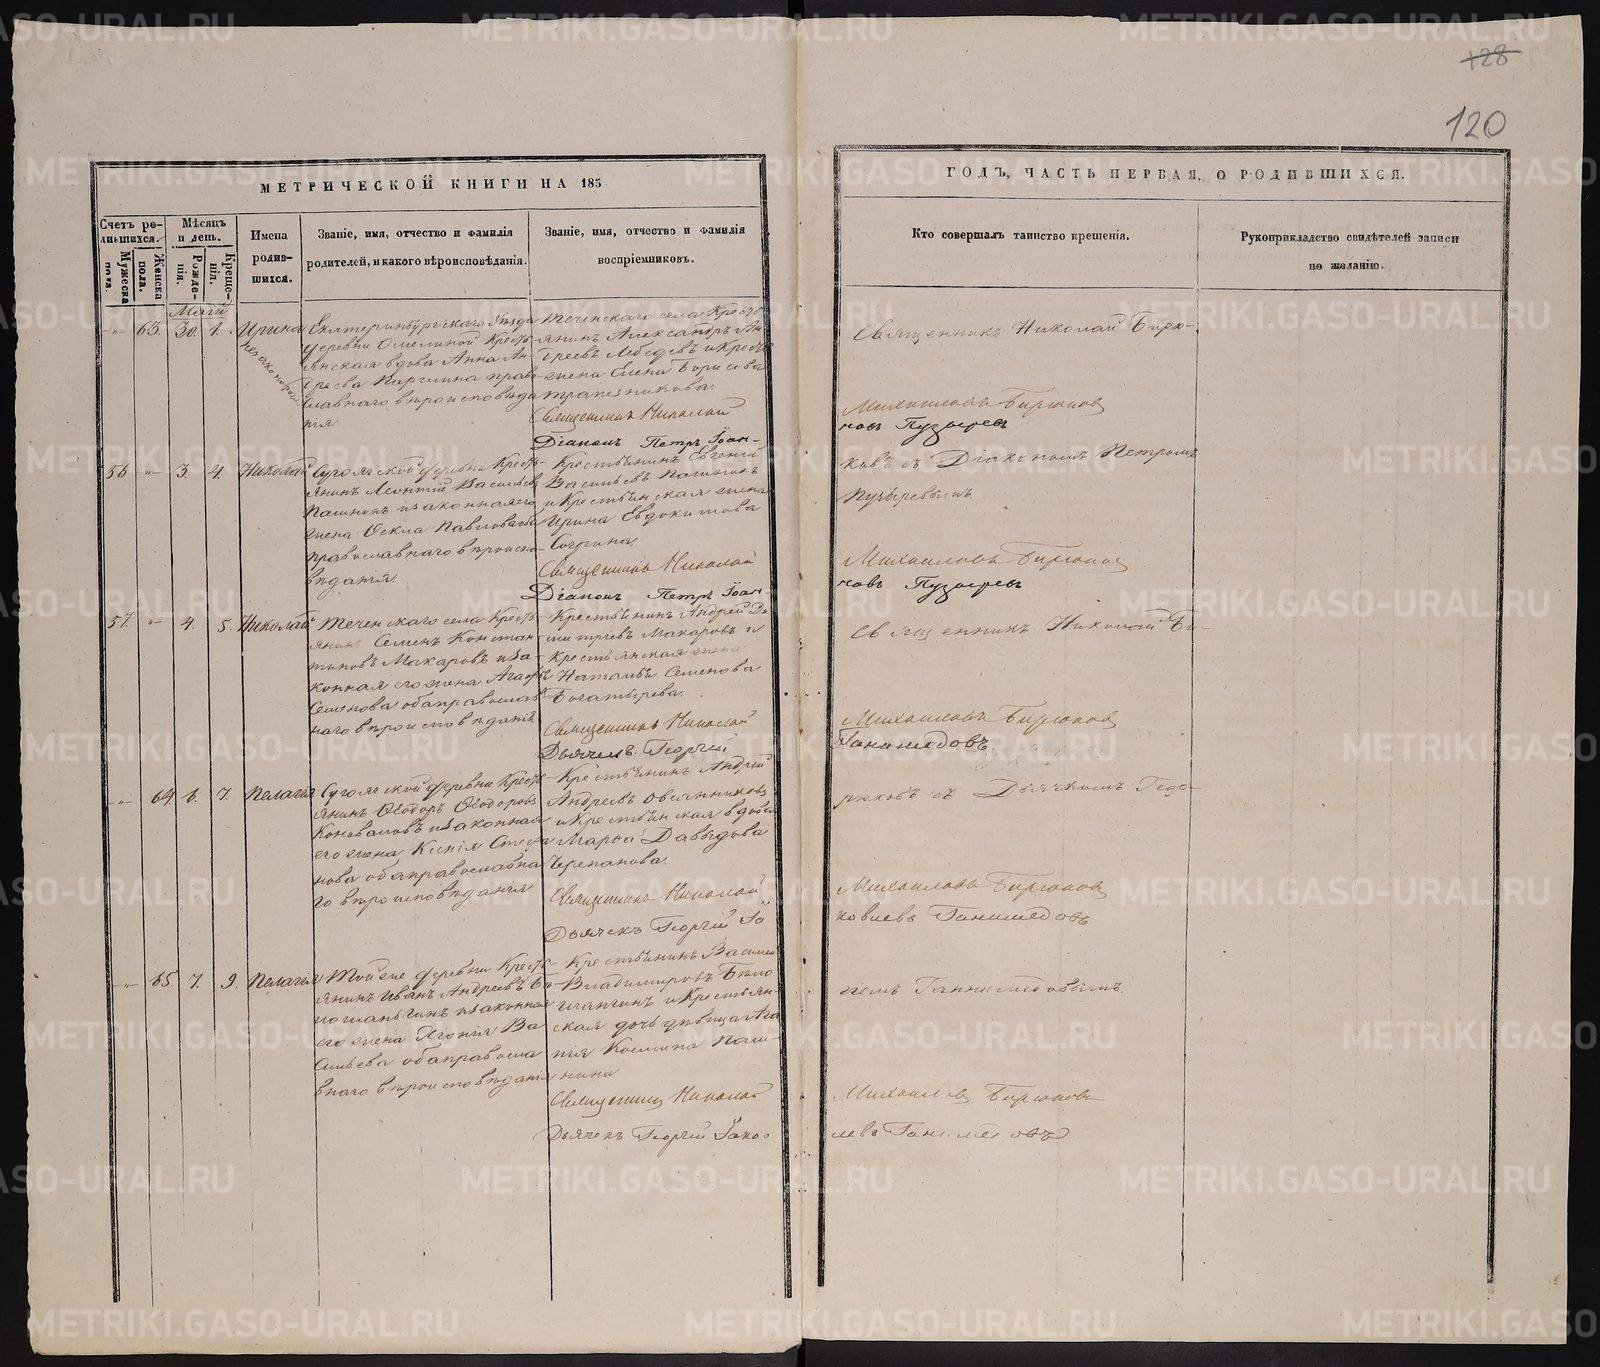 128
120
МЕТРИЧЕСКОЙ КНИГИ НА 185
ГОДЪ, ЧАСТЬ ПЕРВАЯ, О РОДИВШИХСЯ.
Счетъ родившихся.
Мужеска пола.
Женска пола.
Мѣсяцъ и день.
Рожденія.
Крещенія.
Имена родившихся.
Званіе, имя, отчество и фамилія
родителей, и какого вѣроисповѣданія.
Званіе, имя, отчество и фамилія
воспріемниковъ.
Кто совершалъ таинство крещенія.
Рукоприкладство свидѣтелей записи
по желанію.
Май
63. 30. 1. Ирина
Екатеринбургскаго Уѣзда
деревни
янская вдова Анна Ан-
православнаго вѣроисповѣданія
Теченскаго села Кресть-
янинъ Александръ Ан-
дреевъ Лебедевъ и Крест.
жена Елена Борисова
Трапезникова.
Священникъ Николай
Діаконъ Петръ Іоан-
Священникъ Николай Бирю-
Михаиловъ Бирюковъ
новъ Пузыревъ
56 3. 4. Николай
Сугоякской деревни Кресть-
янинъ Леонтій Васильевъ
Пашнинъ и законная его
жена Ѳекла Павлова оба
православнаго вѣроиспо-
вѣданія.
Крестьянинъ Евгеній
Васильевъ Пашнинъ
и Крестьянская жена
Ирина Евдокимова
Сугрина.
Священникъ Николай
Діаконъ Петръ Іоан-
ковъ съ Діакономъ Петромъ
Пузыревымъ.
Михаиловъ Бирюковъ
новъ Пузыревъ
57. 4. 5. Николай
Теченскаго села Кресть-
янинъ Семенъ Констан-
тиновъ Макаровъ и за-
конная его жена Агафья
Семенова оба православ-
наго вѣроисповѣданія
Крестьянинъ Андрей Ди-
митріевъ Макаровъ и
крестьянская жена
Наталья Семенова
Богатырева.
Священникъ Николай
Дьячекъ Георгій
Священникъ Николай Би-
Михаиловъ Бирюковъ
Ганимедовъ.
64. 6. 7. Пелагія
Сугоякской деревни Кресть-
янинъ Ѳеодоръ Ѳеодоровъ
Коноваловъ и законная
его жена Ксенія Степа-
нова оба православна-
го вѣроисповѣданія
Крестьянинъ Андрей
Андреевъ Овсянниковъ
и Крестьянская вдова
Марѳа Давыдова
Черепанова.
Священникъ Николай
Дьячекъ Георгій Іа
рюковъ съ Дьячкомъ Геор-
Михаиловъ Бирюковъ
ковлевъ Ганимедовъ
65. 7. 9. Пелагія
Той же деревни Кресть-
янинъ Иванъ Андреевъ Бѣ-
и законная
его жена Ва-
сильева оба правосла-
внаго вѣроисповѣданія
Крестьянинъ Василій
Владимировъ
и Крестьян-
ская дочь дѣвица Ага-
пія Космина Паш-
нина
Священникъ Николай
Дьячекъ Георгій Іаков
гіемъ Ганимедовымъ.
Михаиловъ Бирюковъ
левъ Ганимедовъ
METRIKI.GASO-URAL.RU